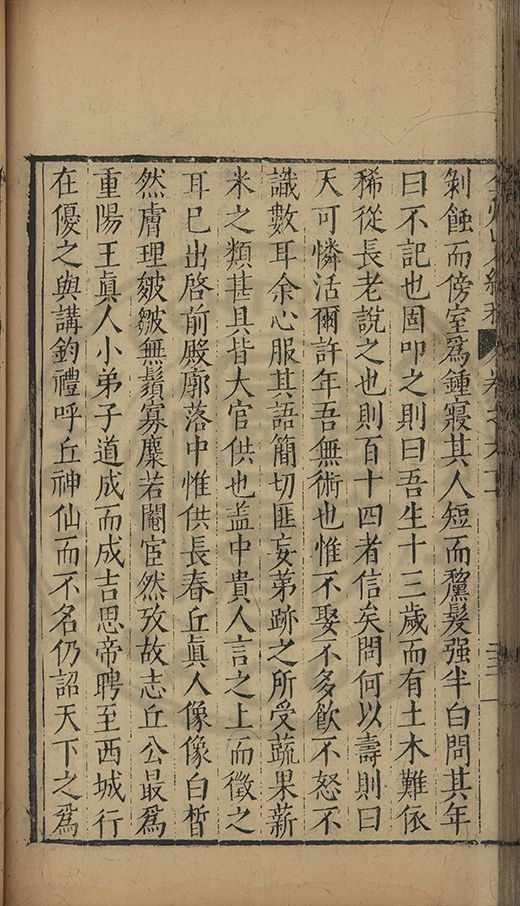 剝蝕而傍室爲鍾寢其人短而黧髮强半白問其年
曰不記也固叩之則曰吾生十三歲而有土木難依
稀從長老說之也則百十四者信矣問何以壽則曰
天可憐活爾許年吾無術也惟不娶不多飲不怒不
識數耳余心服其語簡切匪妄第跡之所受蔬果薪
米之類甚具皆大官供也盖中貴人言之上而徵之
耳巳出啓前殿廓落中惟供長春丘眞人像像白皙
然膚理皴皺無鬚寡麋若閹宦然攷故志丘公最爲
重陽王眞人小弟子道成而成吉思帝聘至西城行
在優之與講鈞禮呼丘神仙而不名仍詔天下之爲